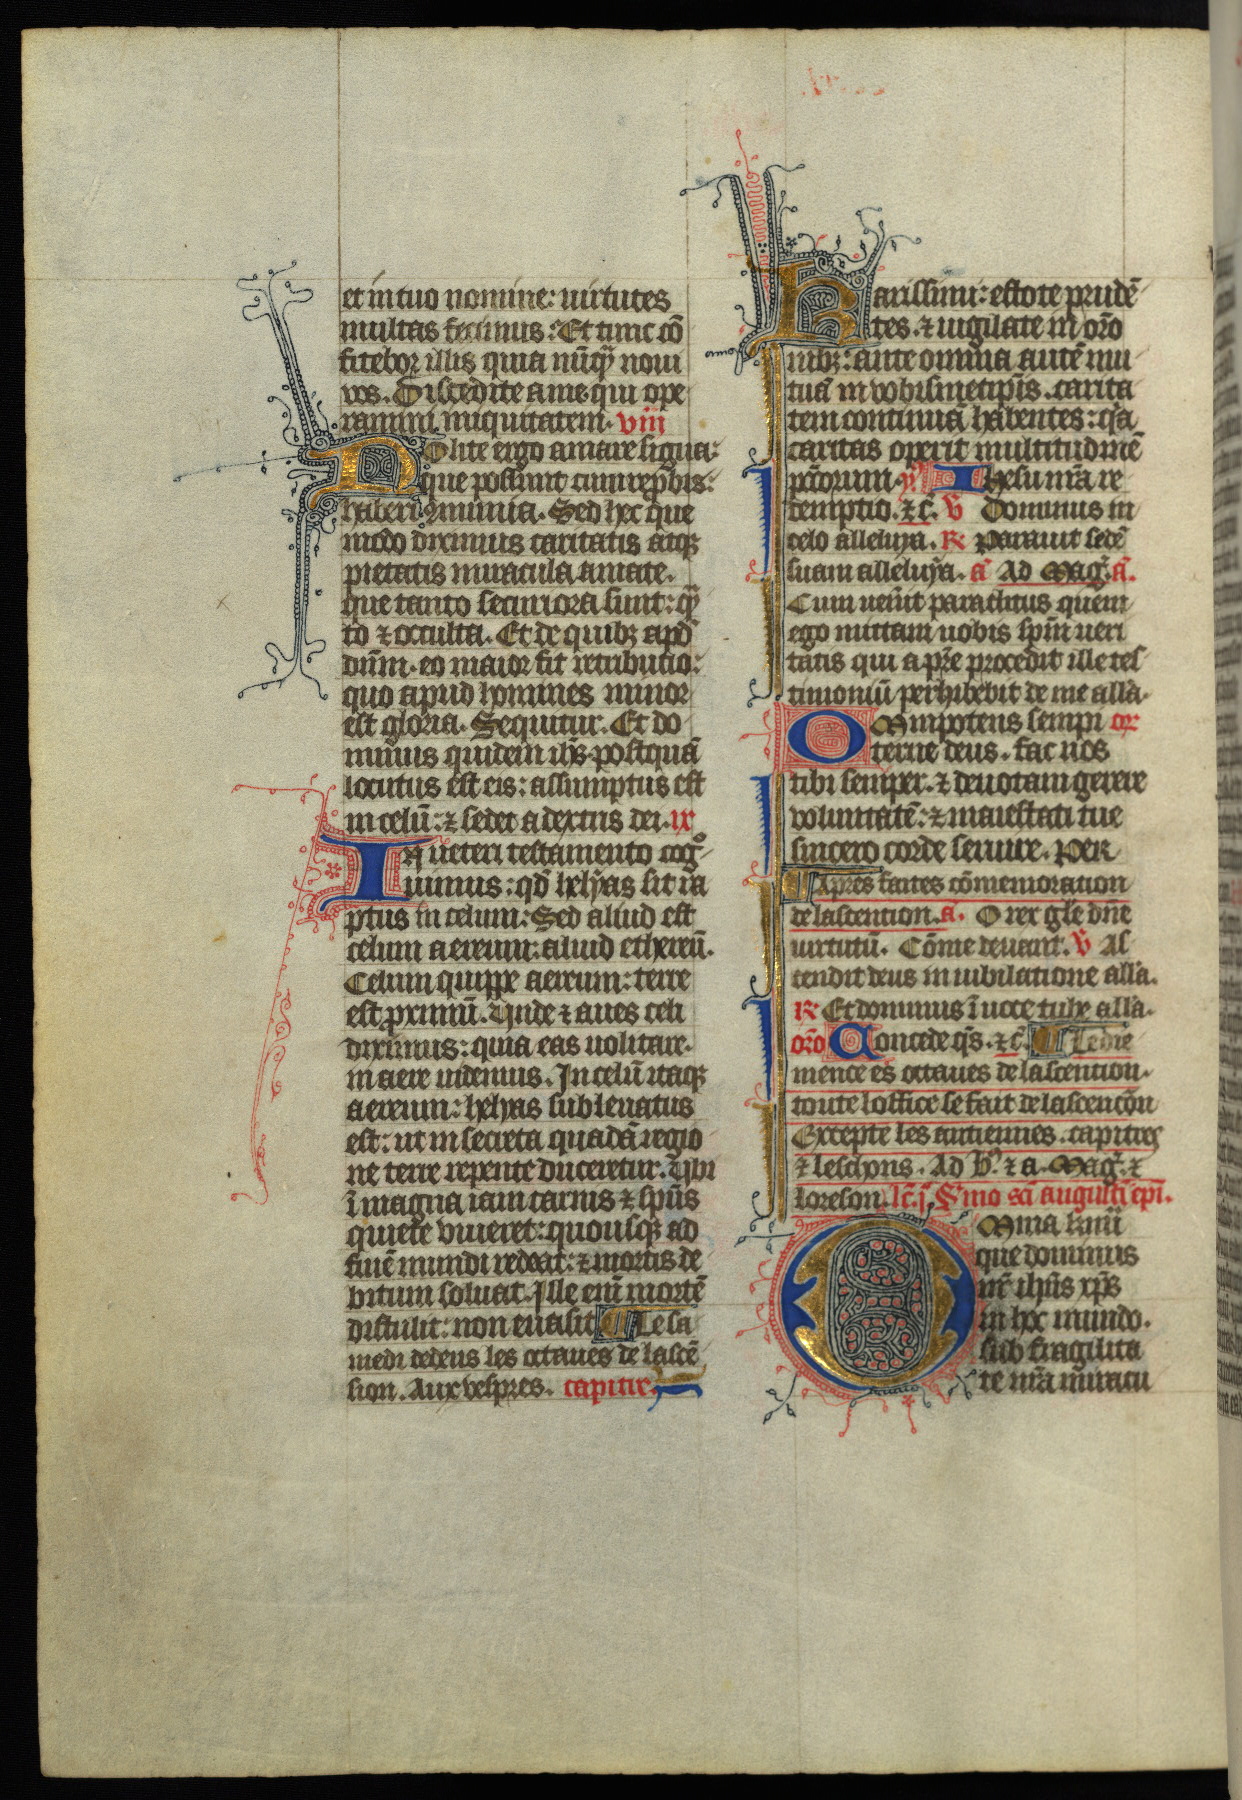 et in tuo nomine: uirtutes
multas fecimus: Et tunc cõ
fitebor illis quia nũq̃ noui
vos. Discedite a me qui ope
ramini iniquitatem. viii
Nolite ergo amare signa:
que possunt cum rep̃bis:
haberi ꝯmunia. Sed hec que
modo diximus caritatis atqꝫ
pietatis miracula amate.
que tanto securiora sunt: q̃
to ⁊ occulta. Et de quibꝫ apď
dñm. eo maior fit retributio:
quo apud homines minor
est gloria. Sequitur. Et do
minus quidem ihs̃. postquã
locutus est eis: assumptus est
in celũ: ⁊ sedet a dextris dei. ix
In ueteri testamento cog̊
uimus: qď helyas sit ra
ptus in celum: Sed aliud est
celum aereum: aliud ethereũ.
Celum quippe aereum: terre
est proximũ. Unde ⁊ aues celi
diximus: quia eas uolitare.
in aere uidemus. In celũ itaqꝫ
aereum: helyas subleuatus
est: ut in secreta quadã regio
ne terre repente duceretur. Ubi
ĩ magna iam carnis ⁊ spũs
quiete viueret: quousqꝫ ad
finẽ mundi redeat: ⁊ mortis de
bitum soluat. Ille eni͂ mortẽ
distulit: non euasit ¶ Le sa
medi dedens les octaues de lascẽ
sion. Aux vespres. capitle.
Karissimi: estote prudẽ
tes. ⁊ uigilate in orõ
nibꝫ: ante omnia autẽ mu
tuã in vobismetip̃is. carita
tem continuã habentes: q̃a
caritas operit multitudinẽ
pc̃torum. yp̃ Ihesu nr̃a re
demptio. ⁊c̃. ṽ Dominus in
celo alleluya. R̃ Parauit sedẽ
suam alleluỹa. ã Ad Mag̃. ã.
Cum uen̾it paraclitus quem
ego mittam uobis spñ ueri
tatis qui a pr̃e procedit ille tes
timoniũ perhibebit de me allã.
Omnipotens sempi or̃
terne deus. fac nos
tibi semper. ⁊ deuotam gerere
voluntatẽ: ⁊ maiestati tue
sincero corde seruire. PER
¶ Apres faites cõmemoration
de lascention. ã. O rex gl̃e dñe
uirtutũ. Cõme deuant. ṽ As
cendit deus in iubilatione allã.
R̃ Et dominus ĩ uoce tube allã.
orõ Concede q̃s. ⁊c̃. ¶ Le die
mence es octaues de lascention.
toute loffice se fait de lascencõn
Excepte les antiennes. capitres
⁊ leschons. Ad b̾. ⁊ a. Mag̃. ⁊
loreson. lc̃. j. S̃mo sc̃i augusti͂ ep̃i.
Omnia k̾mi͂
que dominus
nr̃ ihũs xp̃s
in hoc mundo.
sub fragilita
te nr̃a miracu